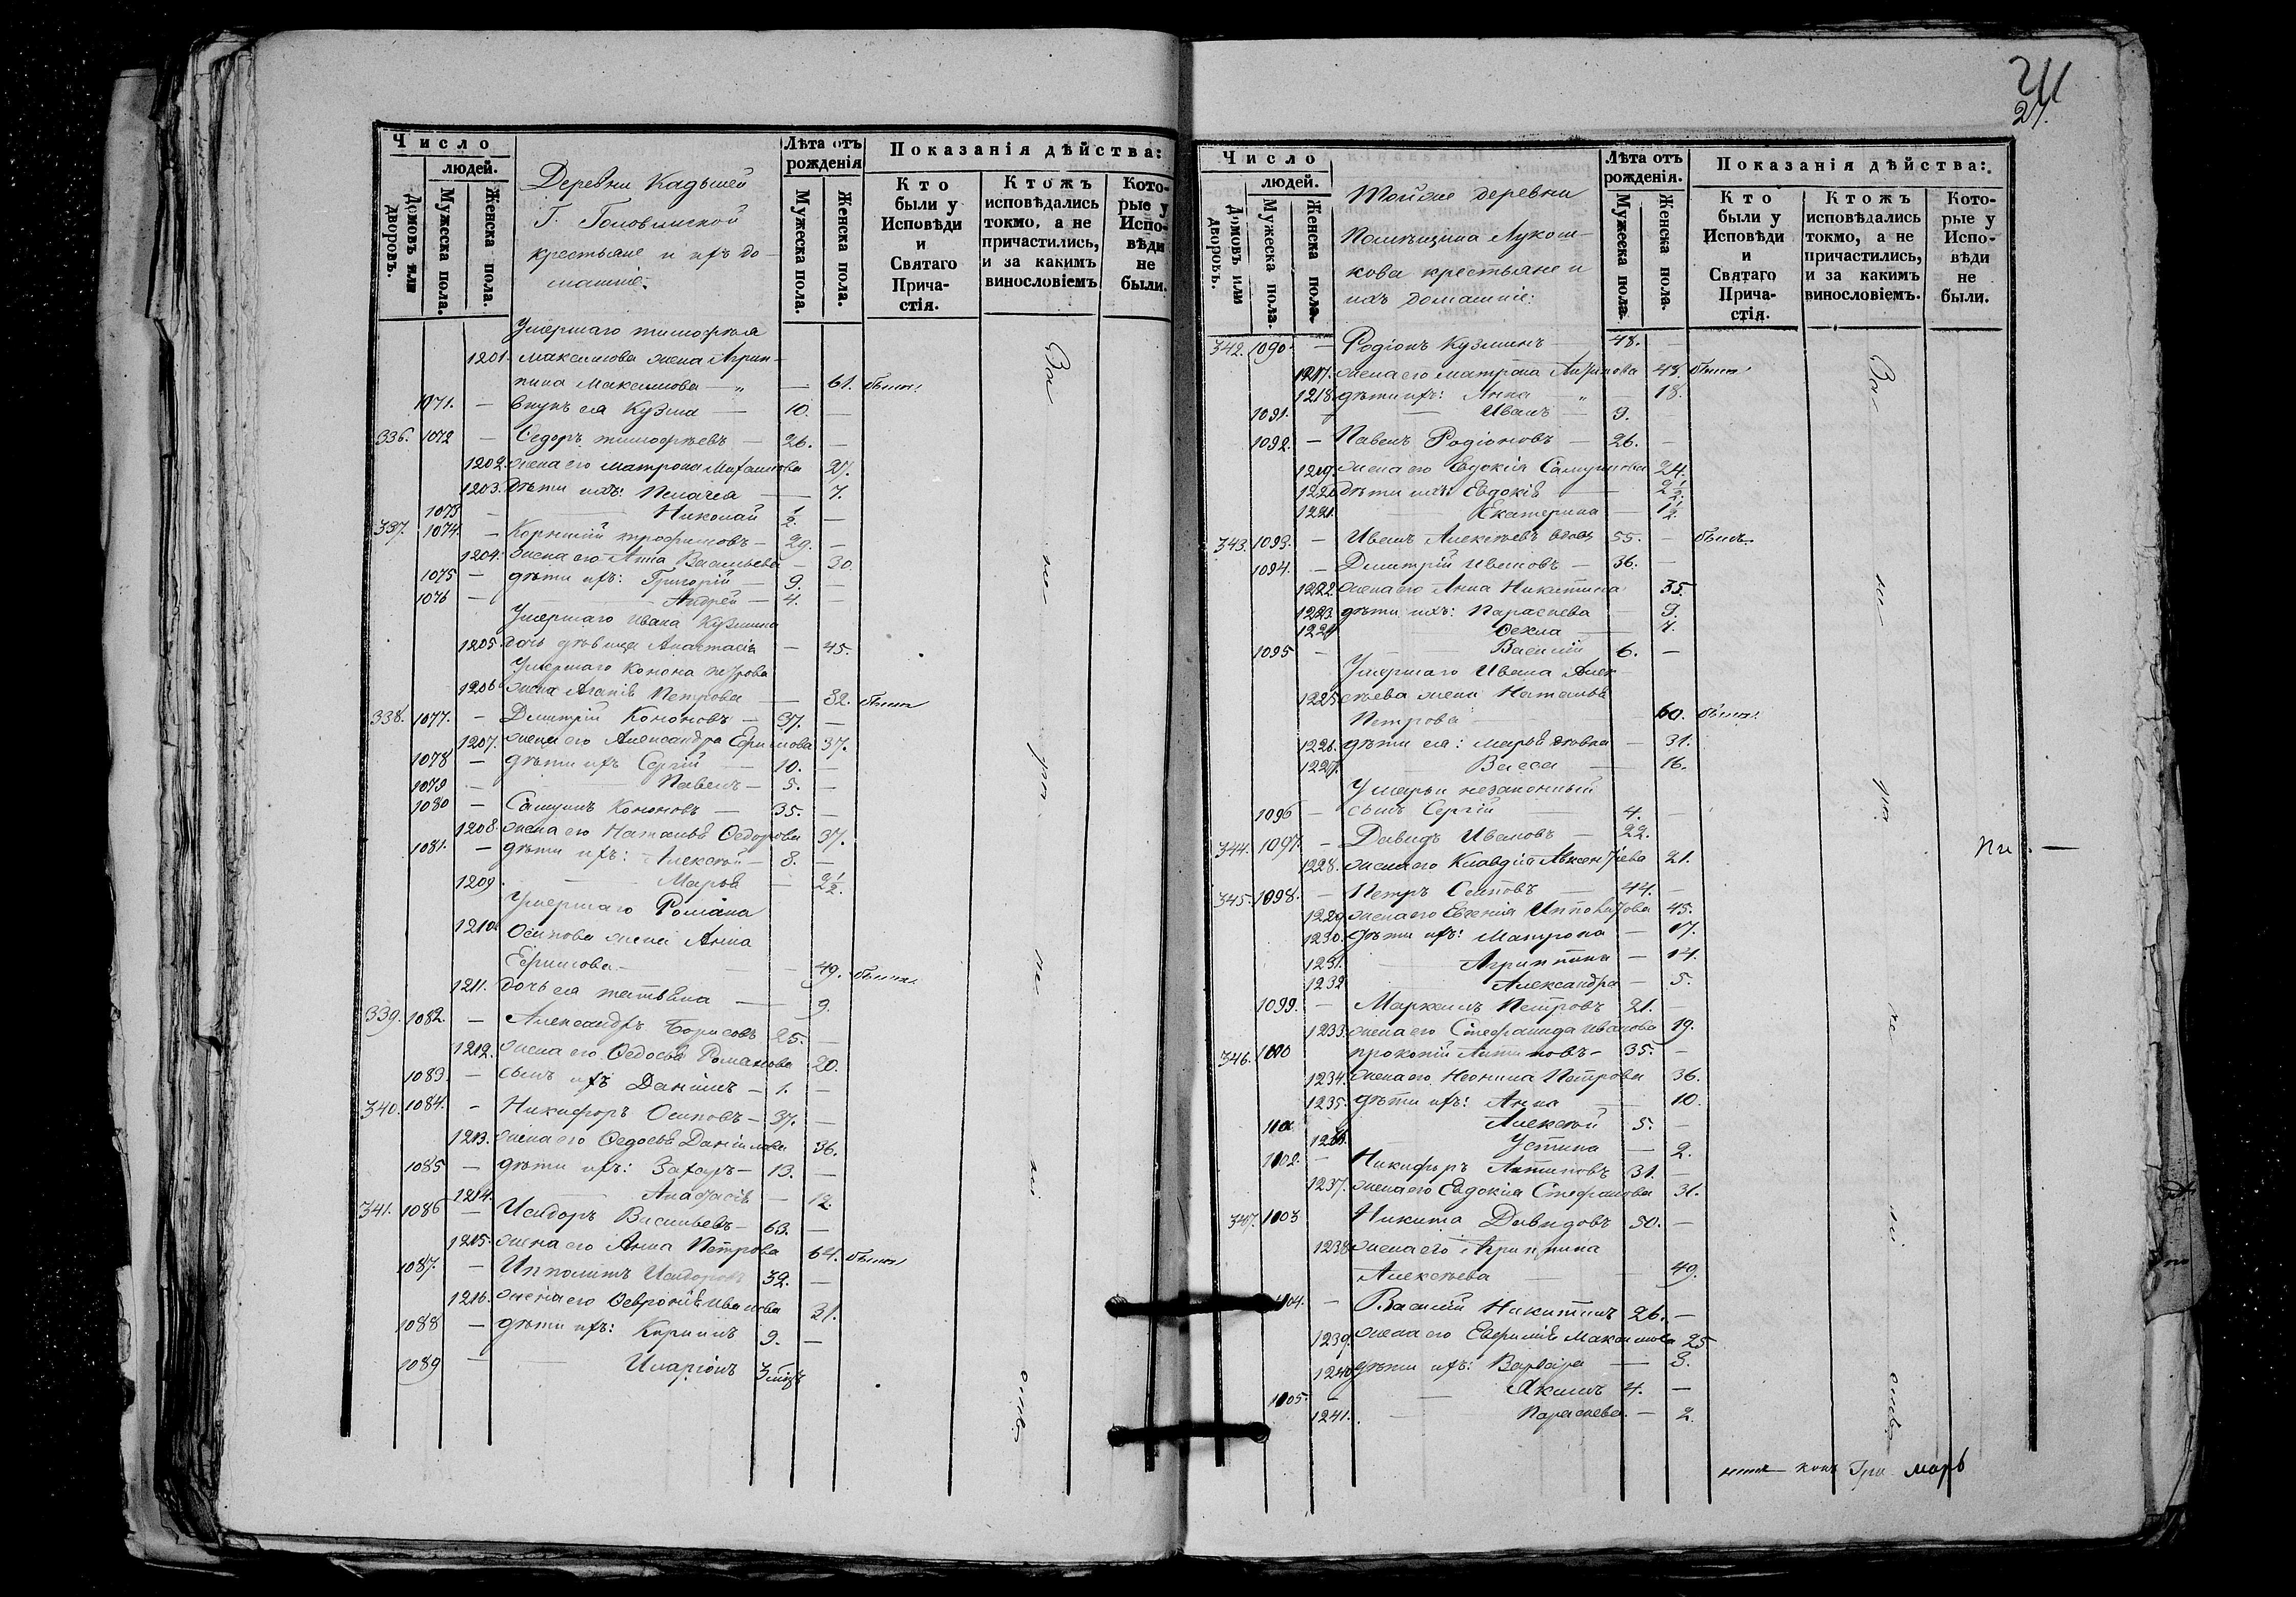 Число
людей.
Домовъ или дворовъ.
Мужеска пола.
Женска пола.
Деревни Кадышей
Г. Головинской
крестьяне и ихъ до-
машніе.
Лѣта отъ рожденія
Мужеска пола.
Женска пола.
Показанія дѣйства:
Кто были у Исповѣди и Святаго Причастія.
Ктожъ исповѣдались токмо, а не причастились, и за какимъ винословіемъ
Которые у Исповѣди не были.
Умершаго Тимофѣя
1201. Максимова жена Агрип-
пина Максимова — „ — 61. была
1071. — внукъ ея Кузма — 10. —
336. 1072 — Ѳедоръ Тимофѣевъ — 26. —
1202. жена его Матрона 27.
1203. дѣти ихъ: Пелагея — 7.
1073 — Николай 1/2. —
337. 1074. — Корнилій Трофимовъ — 29. —
1204. жена его Анна Васильева — 30.
1075 — дѣти ихъ: Григорій — 9. —
1076 — Андрей — 4. —
Умершаго Ивана Кузмина
1205. дочь дѣвица Анастасія — 45.
Умершаго Конона Петрова
1206 жена Агапія Петрова — 82. была
338. 1077. — Дмитрій Кононовъ — 37. —
1207. жена его Александра Ефимова 37.
1078 — дѣти ихъ Сергій — 10. —
1079 — Павелъ — 5. —
1080 — Самуилъ Кононовъ — 35. —
1208. жена его Наталья Ѳедорова 37.
1081. — дѣти ихъ: Алексѣй — 8. —
1209. Марья — 2 1/2.
Умершаго Романа
1210. Осипова жена Анна
Ефимова — 49. была
1211. дочь ея Татьяна — 9.
339. 1082. — Александръ Борисовъ 25. —
1212. жена его Ѳедосья Романова 20.
1083. — сынъ ихъ Даніилъ — 1. —
340. 1084. — Никифоръ Осиповъ — 37. —
1213. жена его Ѳедосья Даніилова 36.
1085 — дѣти ихъ: Захаръ — 13. —
1214. — 12.
341. 1086 — Исидоръ Васильевъ — 63. —
1215. жена его Анна Петрова 64. была
1087. — Ипполитъ Исидоровъ 32. —
1216. жена его Ѳевронія Иванова 31.
1088 — дѣти ихъ: Кирилъ 9. —
1089 — Иларіонъ 3 мѣс
Во
не
ра
не
ні
27.
Число
людей.
Домовъ или дворовъ.
Мужеска пола.
Женска пола.
Тойже деревни
Помѣщика Лукош-
кова крестьяне и
ихъ домашніе:
Лѣта отъ рожденія.
Мужеска пола.
Женска пола.
Показанія дѣйства:
Кто были у Исповѣди и Святаго Причастія.
Ктожъ исповѣдались токмо, а не причастились, и за какимъ винословіемъ.
Которые у Исповѣди не были.
342. 1090. — Родіонъ Кузминъ — 48. —
1217. жена его Матрона 48. была
1218. дѣти ихъ: Анна — „ — 18.
1091. — Иванъ — 9.
1092. — Павелъ Родіоновъ — 26. —
1219. жена его Евдокія 24.
1220. дѣти ихъ: Евдокія — 2 1/2.
1221. Екатерина — 1/2.
343. 1093. — Иванъ Алексѣевъ вдовъ 55. — былъ
1094. — Дмитрій Ивановъ — 36. —
1222. жена его Анна Никитина 35.
1223. дѣти ихъ: Параскева — 9.
1224 Ѳекла — 7.
1095 — Василій 6. —
Умершаго Ивана Алек-
1225. сѣева жена Наталья
Петрова — 60. была
1226. дѣти ея: Марья вдова — 31.
1227. Васса — 16.
У Марьи незаконный
1096 — сынъ Сергій 4. —
344. 1097. — Давидъ Ивановъ — 22.
1228. жена его Клавдія 21.
345. 1098. — Петръ Осиповъ — 44. —
1229. жена его Евгенія Ипполитова 45.
1230. дѣти ихъ: Матрона — 17.
1231. Агриппина — 14.
1232 Александра — 5.
1099. — Маркелъ Петровъ 21. —
1233. жена его Стефанида Иванова 19.
346. 1100 Прокопій Антиповъ — 35. —
1234. жена его Неонила Петрова 36.
1235. дѣти ихъ: Анна — 10.
1101 Алексѣй 5. —
1236. Устина — 2.
1102. — Никифоръ Антиповъ 31. —
1237. жена его Евдокія Стефанова 31.
347. 1103 Никита Давидовъ 50. —
1238 жена его Агриппина
Алексѣева — 49.
1104. — Василій Никитинъ 26. —
1239. жена его Евфимія Максимова 25
1240 дѣти ихъ: Варвара — 3.
1105. — Акимъ 4. —
1241. — Параскева — 2.
Во
не
ра
не
ні